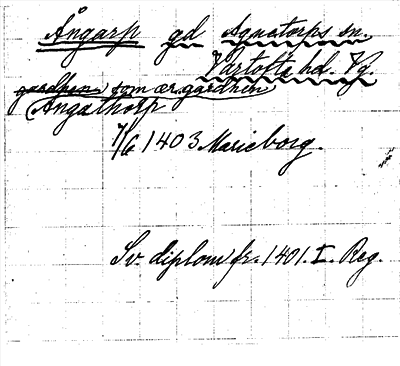 Ångarp gd Agnetorps sn.
Vartofta hd. Vg.
gardhen som ær gardhen
Angathorp
7/6 1403 Marieborg.
Sv. diplom fr. 1401. I. Reg.